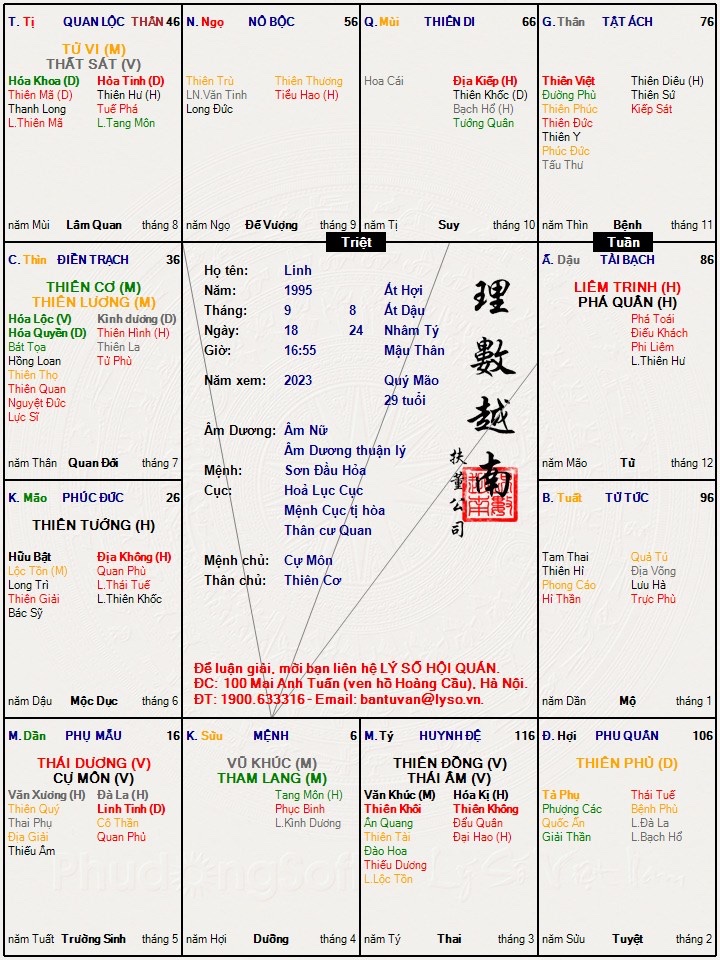 T. Tị QUAN LỘC THÂN 46
TỬ VI (M)
THẤT SÁT (V)
Hóa Khoa (D) Hỏa Tinh (D)
Thiên Mã (D) Thiên Hư (H)
Thanh Long Tuế Phá
L.Thiên Mã L.Tang Môn
năm Mùi Lâm Quan tháng 8
N. Ngọ NÔ BỘC 56
Thiên Trù Thiên Thương
LN.Văn Tinh Tiểu Hao (H)
Long Đức
năm Ngọ Đế Vượng tháng 9
Q. Mùi THIÊN DI 66
Hoa Cái Địa Kiếp (H)
Thiên Khốc (D)
Bạch Hổ (H)
Tướng Quân
năm Tị Suy tháng 10
G. Thân TẬT ÁCH 76
Thiên Việt Thiên Diêu (H)
Đường Phù Thiên Sứ
Thiên Phúc Kiếp Sát
Thiên Đức
Thiên Y
Phúc Đức
Tấu Thư
năm Thìn Bệnh tháng 11
Triệt
Tuần
C. Thìn ĐIỀN TRẠCH 36
THIÊN CƠ (M)
THIÊN LƯƠNG (M)
Hóa Lộc (V) Kình dương (D)
Hóa Quyền (D) Thiên Hình (H)
Bát Tọa Thiên La
Hồng Loan Tử Phù
Thiên Thọ
Thiên Quan
Nguyệt Đức
Lực Sĩ
năm Thân Quan Đới tháng 7
Họ tên: Linh
Năm: 1995 Ất Hợi
Tháng: 9 8 Ất Dậu
Ngày: 18 24 Nhâm Tý
Giờ: 16:55 Mậu Thân
Năm xem: 2023 Quý Mão
29 tuổi
Âm Dương: Âm Nữ
Âm Dương thuận lý
Mệnh: Sơn Đầu Hỏa
Cục: Hoả Lục Cục
Mệnh Cục tị hòa
Thân cư Quan
Mệnh chủ: Cự Môn
Thân chủ: Thiên Cơ
理數越南
扶董公司
Để luận giải, mời bạn liên hệ LÝ SỐ HỘI QUÁN.
ĐC: 100 Mai Anh Tuấn (ven hồ Hoàng Cầu), Hà Nội.
ĐT: 1900.633316 - Email: bantuvan@lyso.vn.
Ấ. Dậu TÀI BẠCH 86
LIÊM TRINH (H)
PHÁ QUÂN (H)
Phá Toái
Điếu Khách
Phi Liêm
L.Thiên Hư
năm Mão Tử tháng 12
K. Mão PHÚC ĐỨC 26
THIÊN TƯỚNG (H)
Hữu Bật Địa Không (H)
Lộc Tồn (M) Quan Phù
Long Trì L.Thái Tuế
Thiên Giải L.Thiên Khốc
Bác Sỹ
năm Dậu Mộc Dục tháng 6
B. Tuất TỬ TỨC 96
Tam Thai Quả Tú
Thiên Hỉ Địa Võng
Phong Cáo Lưu Hà
Hỉ Thần Trực Phù
năm Dần Mộ tháng 1
M. Dần PHỤ MẪU 16
THÁI DƯƠNG (V)
CỰ MÔN (V)
Văn Xương (H) Đà La (H)
Thiên Quý Linh Tinh (D)
Thai Phụ Cô Thần
Địa Giải Quan Phủ
Thiếu Âm
năm Tuất Trường Sinh tháng 5
K. Sửu MỆNH 6
VŨ KHÚC (M)
THAM LANG (M)
Tang Môn (H)
Phục Binh
L.Kình Dương
năm Hợi Dưỡng tháng 4
M. Tý HUYNH ĐỆ 116
THIÊN ĐỒNG (V)
THÁI ÂM (V)
Văn Khúc (M) Hóa Kị (H)
Thiên Khôi Thiên Không
Ân Quang Đẩu Quân
Thiên Tài Đại Hao (H)
Đào Hoa
Thiếu Dương
L.Lộc Tồn
năm Tý Thai tháng 3
Đ. Hợi PHU QUÂN 106
THIÊN PHỦ (D)
Tả Phụ Thái Tuế
Phượng Các Bệnh Phù
Quốc Ấn L.Đà La
Giải Thần L.Bạch Hổ
năm Sửu Tuyệt tháng 2